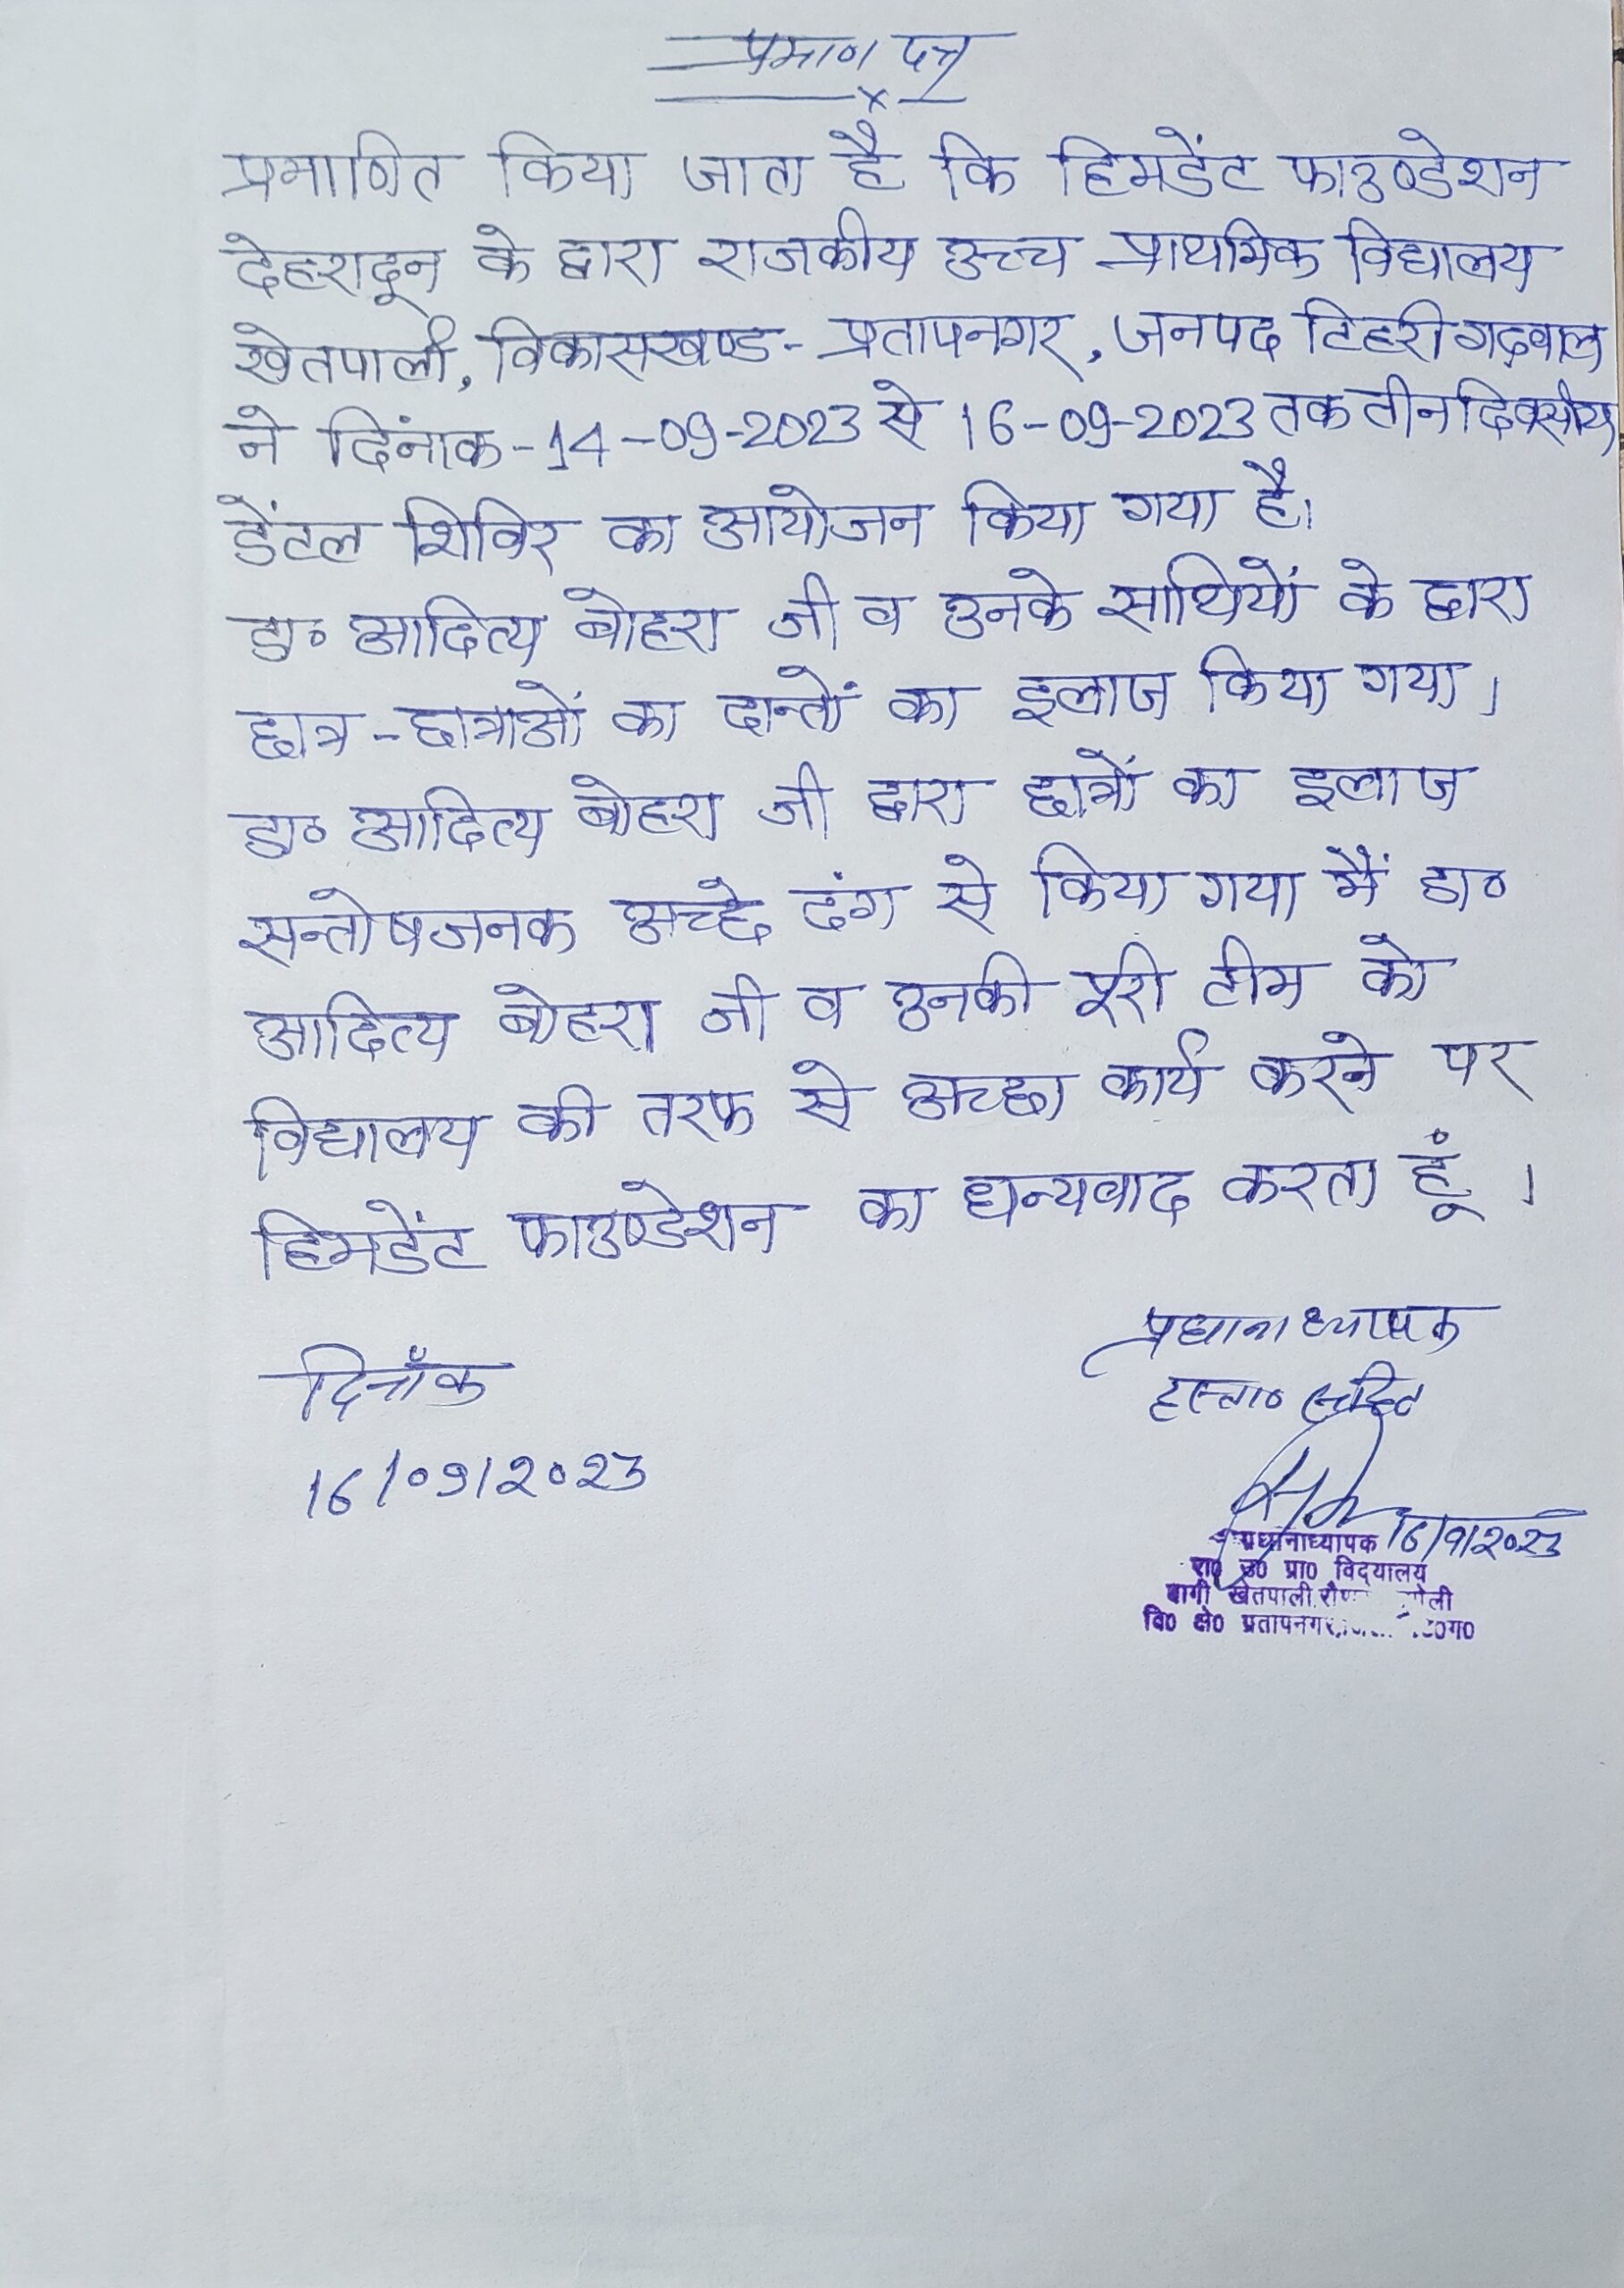 प्रमाण पत्र
प्रमाणित किया जाता है कि हिमडेंट फाउण्डेशन
देहरादून के द्वारा राजकीय उच्च प्राथमिक विद्यालय
खेतपाली, विकासखण्ड - प्रतापनगर, जनपद टिहरी गढ़वाल
ने दिंनाक - 14-09-2023 से 16-09-2023 तक तीन दिवसीय
डेंटल शिविर का आयोजन किया गया है।
डा० आदित्य बोहरा जी व उनके साथियों के द्वारा
छात्र - छात्राओं का दान्तों का इलाज किया गया।
डा० आदित्य बोहरा जी द्वारा छात्रों का इलाज
सन्तोषजनक अच्छे ढंग से किया गया मैं डा०
आदित्य बोहरा जी व उनकी पूरी टीम को
विद्यालय की तरफ से अच्छा कार्य करने पर
हिमडेंट फाउण्डेशन का धन्यवाद करता हूँ।
प्रधानाध्यापक
दिनाँक
हस्ता० सहित
16/09/2023
16/9/2023
प्रधानाध्यापक
रा० उ० प्रा० विद्यालय
बागी खेतपाली
वि० क्षे० प्रतापनगर